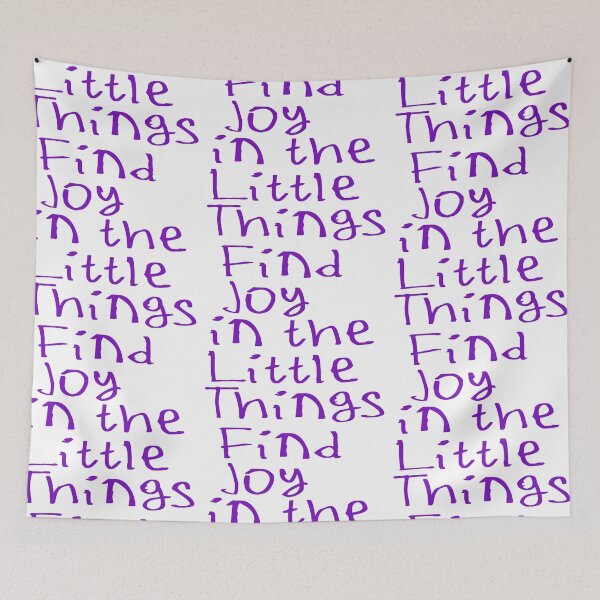 Little
Things
Find
Joy
in the
Little
Things
Find
Joy
in the
Little
Things
Find
Joy
in the
Little
Things
Find
Joy
in the
Little
Things
Find
Joy
in the
Little
Things
Find
Joy
in the
Little
Things
Find
Joy
in the
Little
Things